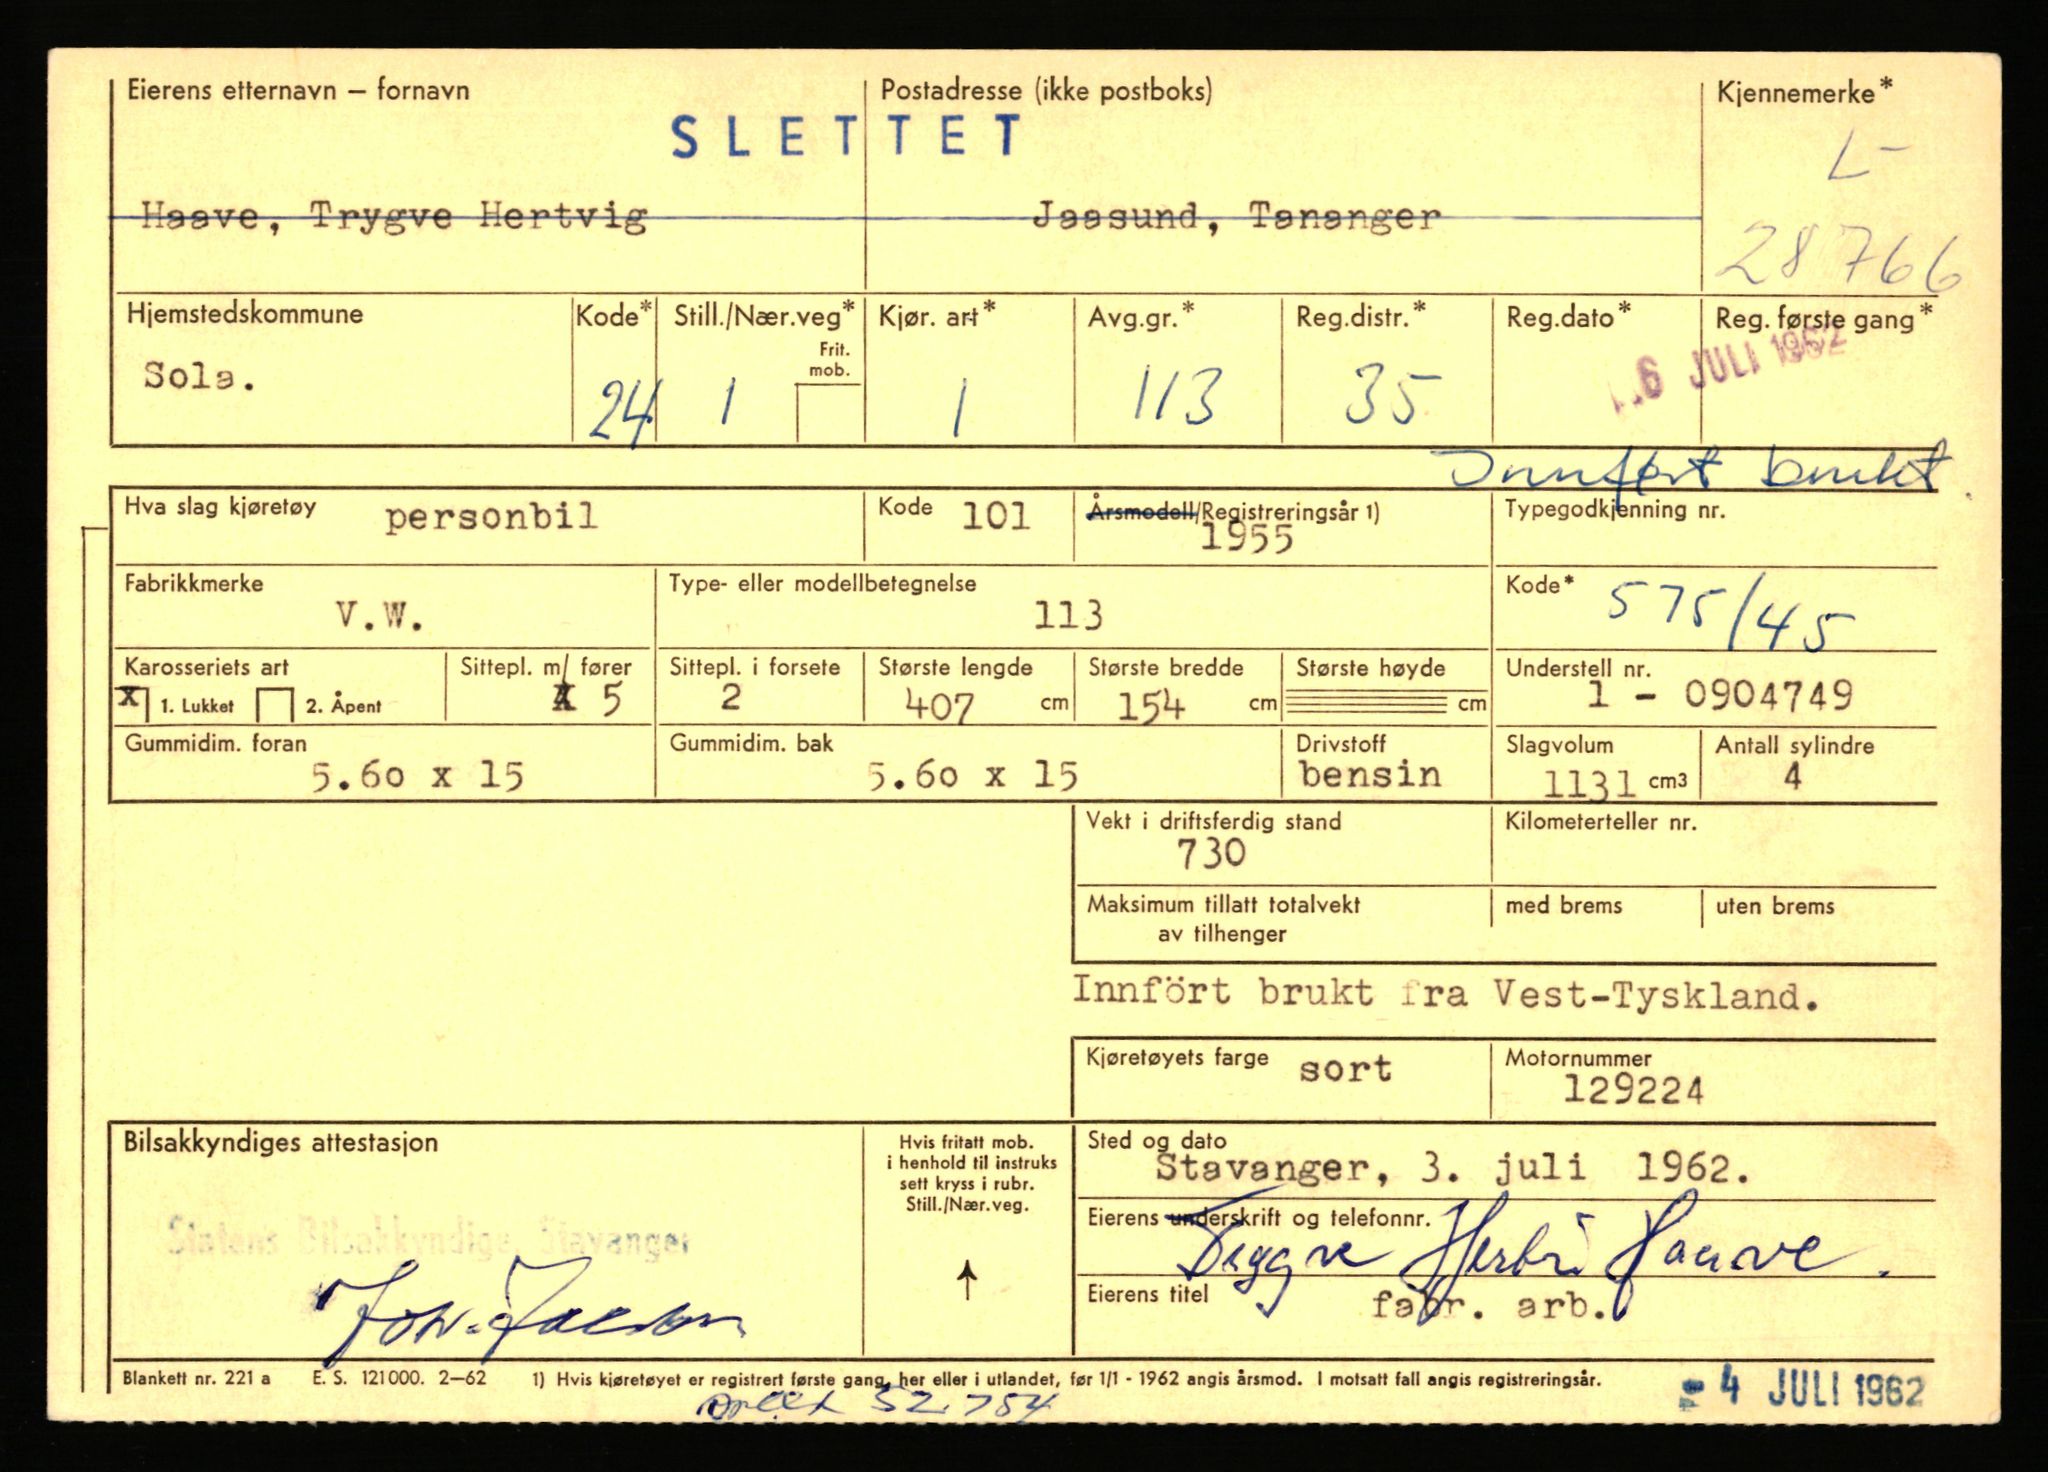 Eierens etternavn – fornavn Postadresse (ikke postboks) Kjennemerke*
SLETTET
L-
Haave, Trygve Hertvig Jaasund, Tananger
28766
Hjemstedskommune Kode* Still./Nær.veg* Kjør. art* Avg.gr.* Reg.distr.* Reg.dato* Reg. første gang*
Frit. mob.
6 JULI 1962
Sola. 24 1 1 113 35
Innført brukt.
Hva slag kjøretøy personbil Kode 101 Årsmodell/Registreringsår 1) 1955 Typegodkjenning nr.
Fabrikkmerke V.W. Type- eller modellbetegnelse 113 Kode* 575/45
Karosseriets art Sittepl. m/ fører Sittepl. i forsete Største lengde Største bredde Største høyde Understell nr.
x 1. Lukket 2. Åpent 5 2 407 cm 154 cm cm 1 - 0904749
Gummidim. foran Gummidim. bak Drivstoff Slagvolum Antall sylindre
5.60 x 15 5.60 x 15 bensin 1131 cm3 4
Vekt i driftsferdig stand Kilometerteller nr.
730
Maksimum tillatt totalvekt med brems uten brems
av tilhenger
Innfört brukt fra Vest-Tyskland.
Kjøretøyets farge sort Motornummer
129224
Bilsakkyndiges attestasjon Hvis fritatt mob. Sted og dato
i henhold til instruks
sett kryss i rubr.
Still./Nær.veg.
Stavanger, 3. juli 1962.
Eierens underskrift og telefonnr.
Statens Bilsakkyndige, Stavanger
Trygve Hertvi Haave.
Eierens titel fabr. arb.
Blankett nr. 221 a E. S. 121000. 2–62 1) Hvis kjøretøyet er registrert første gang, her eller i utlandet, før 1/1 - 1962 angis årsmod. I motsatt fall angis registreringsår.
- 4 JULI 1962
52.754